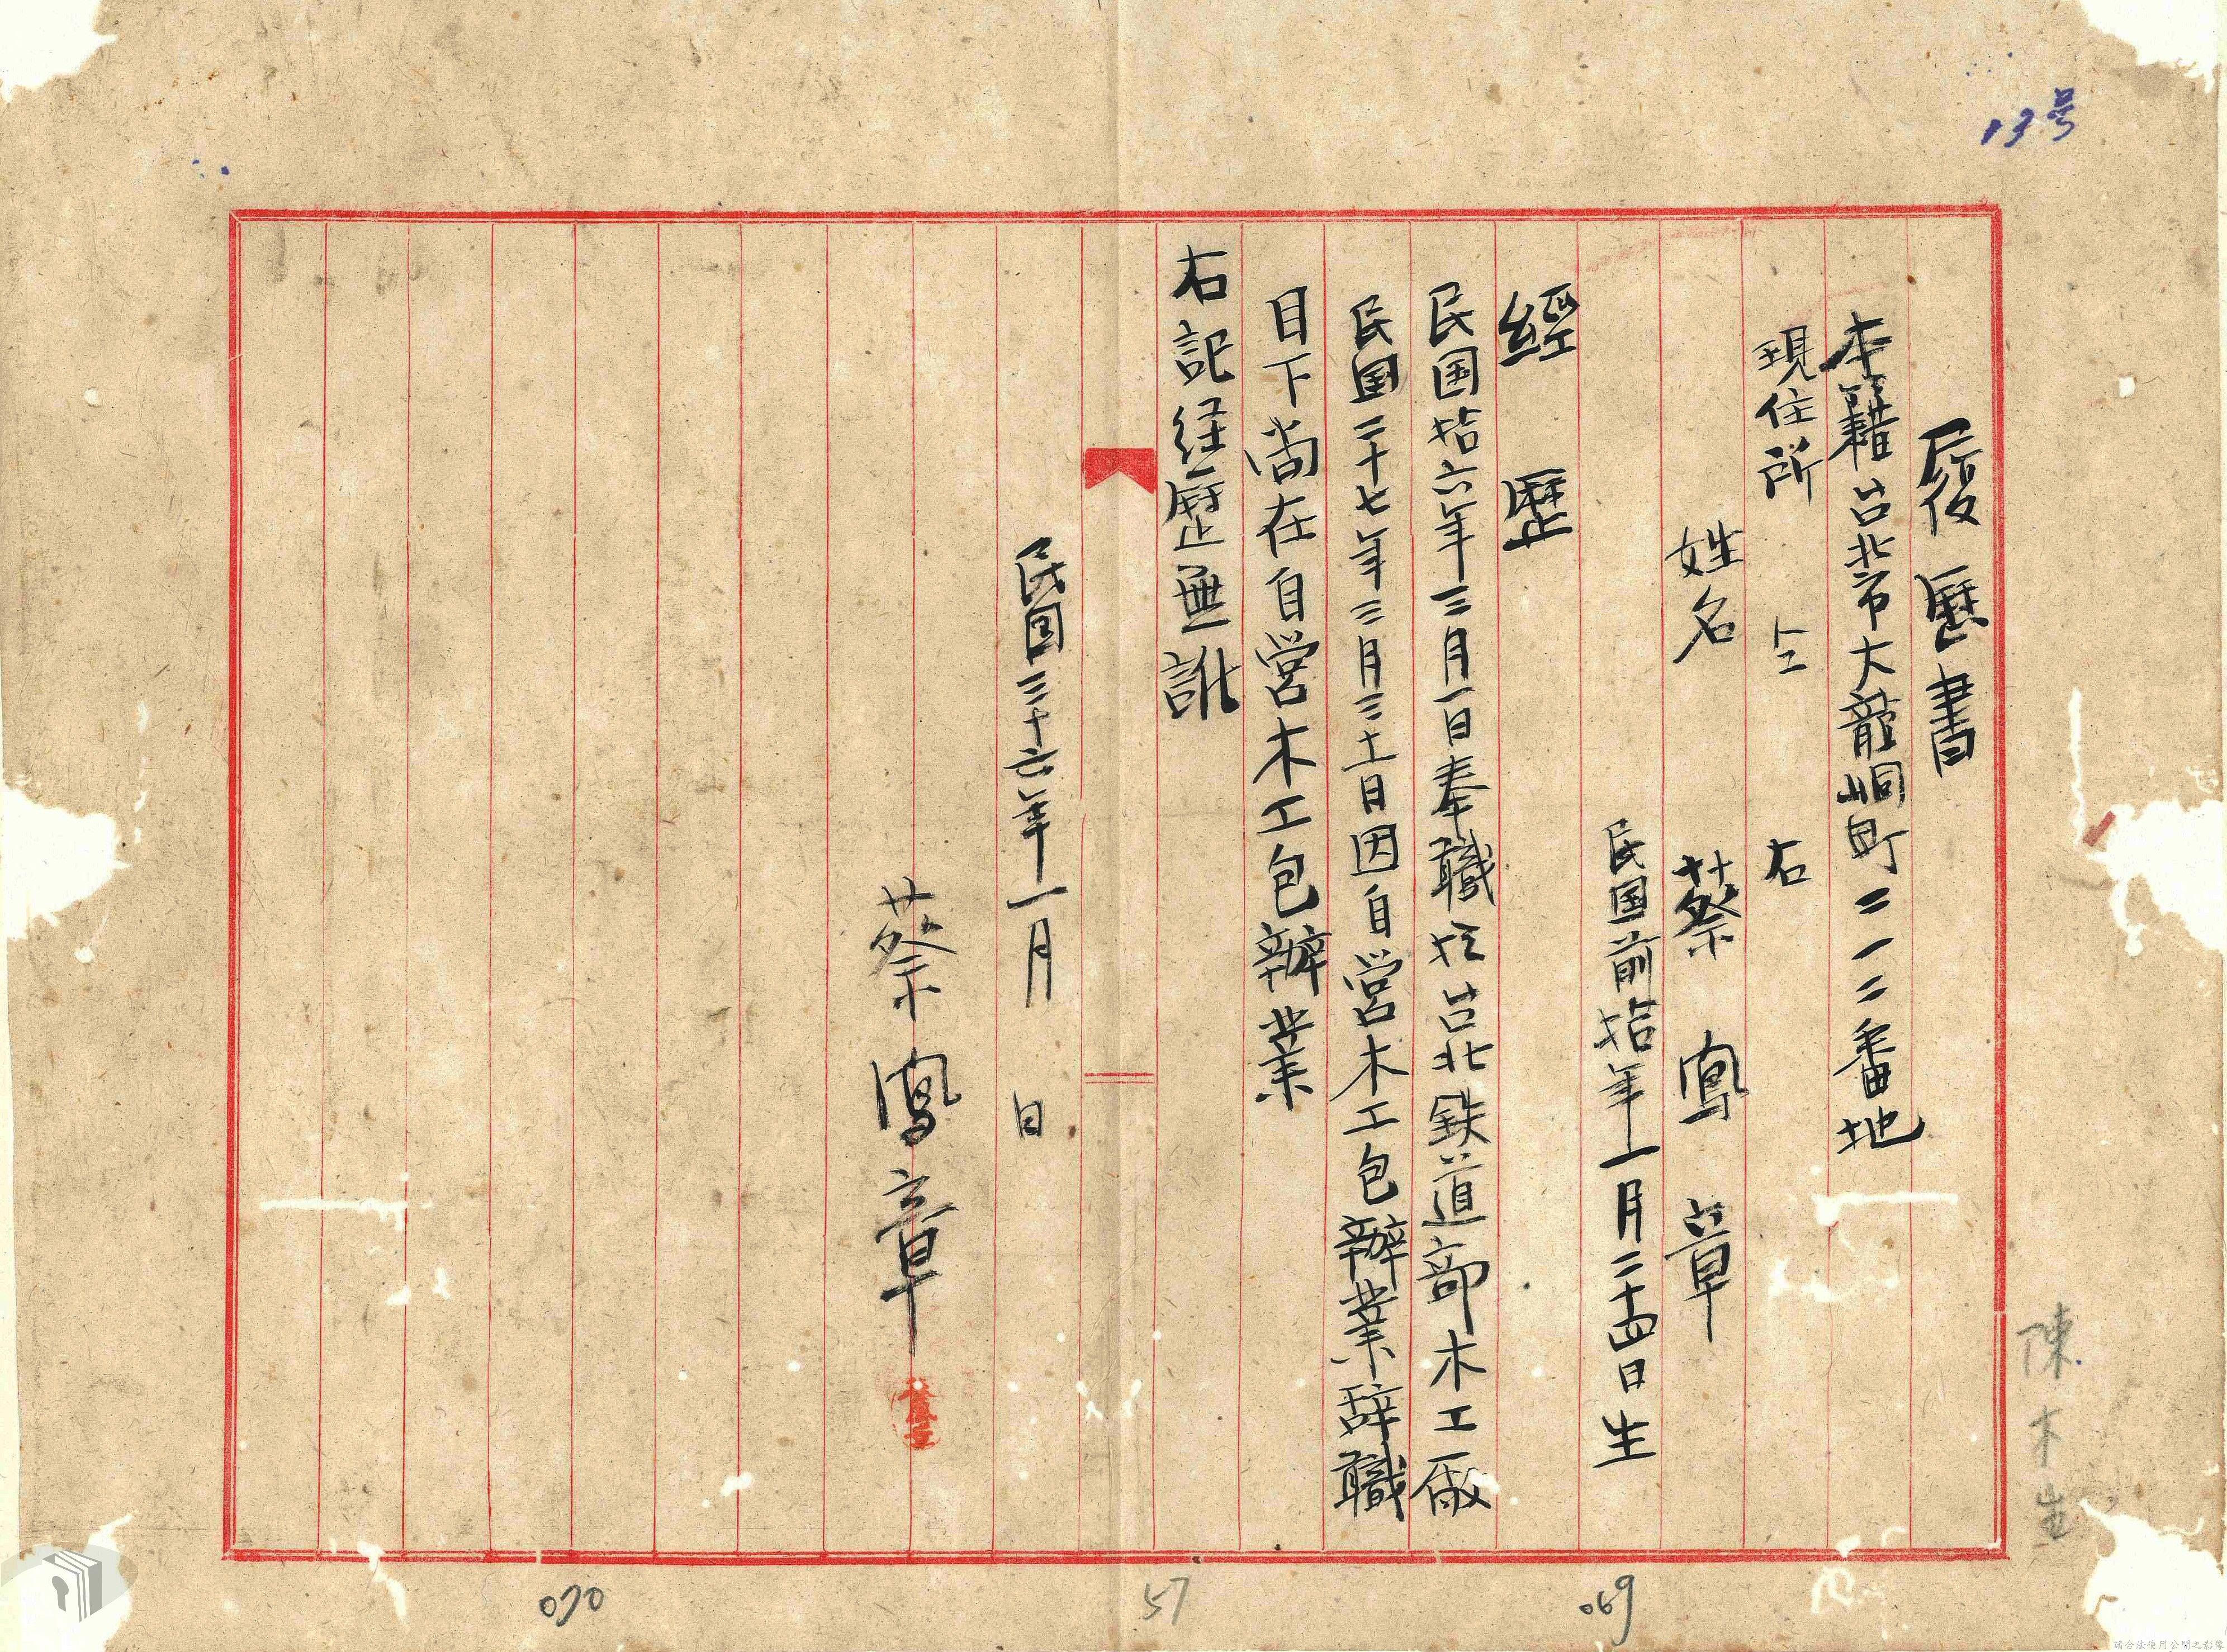 13号
履歴書
本籍台北市大龍峒町二一二番地
現住所 仝 右
姓名 蔡鳳章
民国前拾年一月二十四日生
經歷
民国拾六年三月一日奉職於台北鉄道部木工廠
民国二十七年三月三十日因自營木工包辦業辞職
目下尚在自営木工包辦業
右記経歴無訛
民国三十六年一月 日
蔡鳳章
陳木生
069
57
070
請合法使用公開之影像